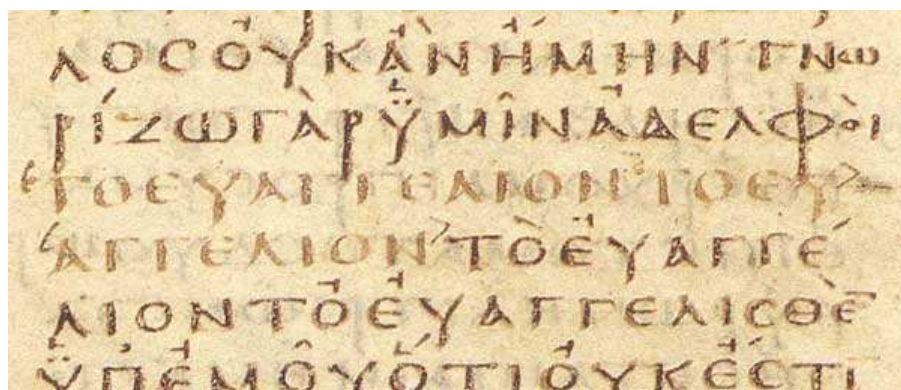 ΛΟCΟὐΚἂΝἤΜΗΝ ΓΝω
ΡίΖΩΓὰΡΫΜῖΝἀΔΕΛΦὸΙ
‹ΤΟΕΥΑΓΓΕΛΙΟΝ ΤΟΕΥ›
‹ΑΓΓΕΛΙΟΝ›ΤὸΕὐΑΓΓέ
ΛΙΟΝΤὸΕὐΑΓΓΕΛΙCΘὲ̅
ΫΠἐΜΟῦὅΤΙΟὐΚἔCΤΙ